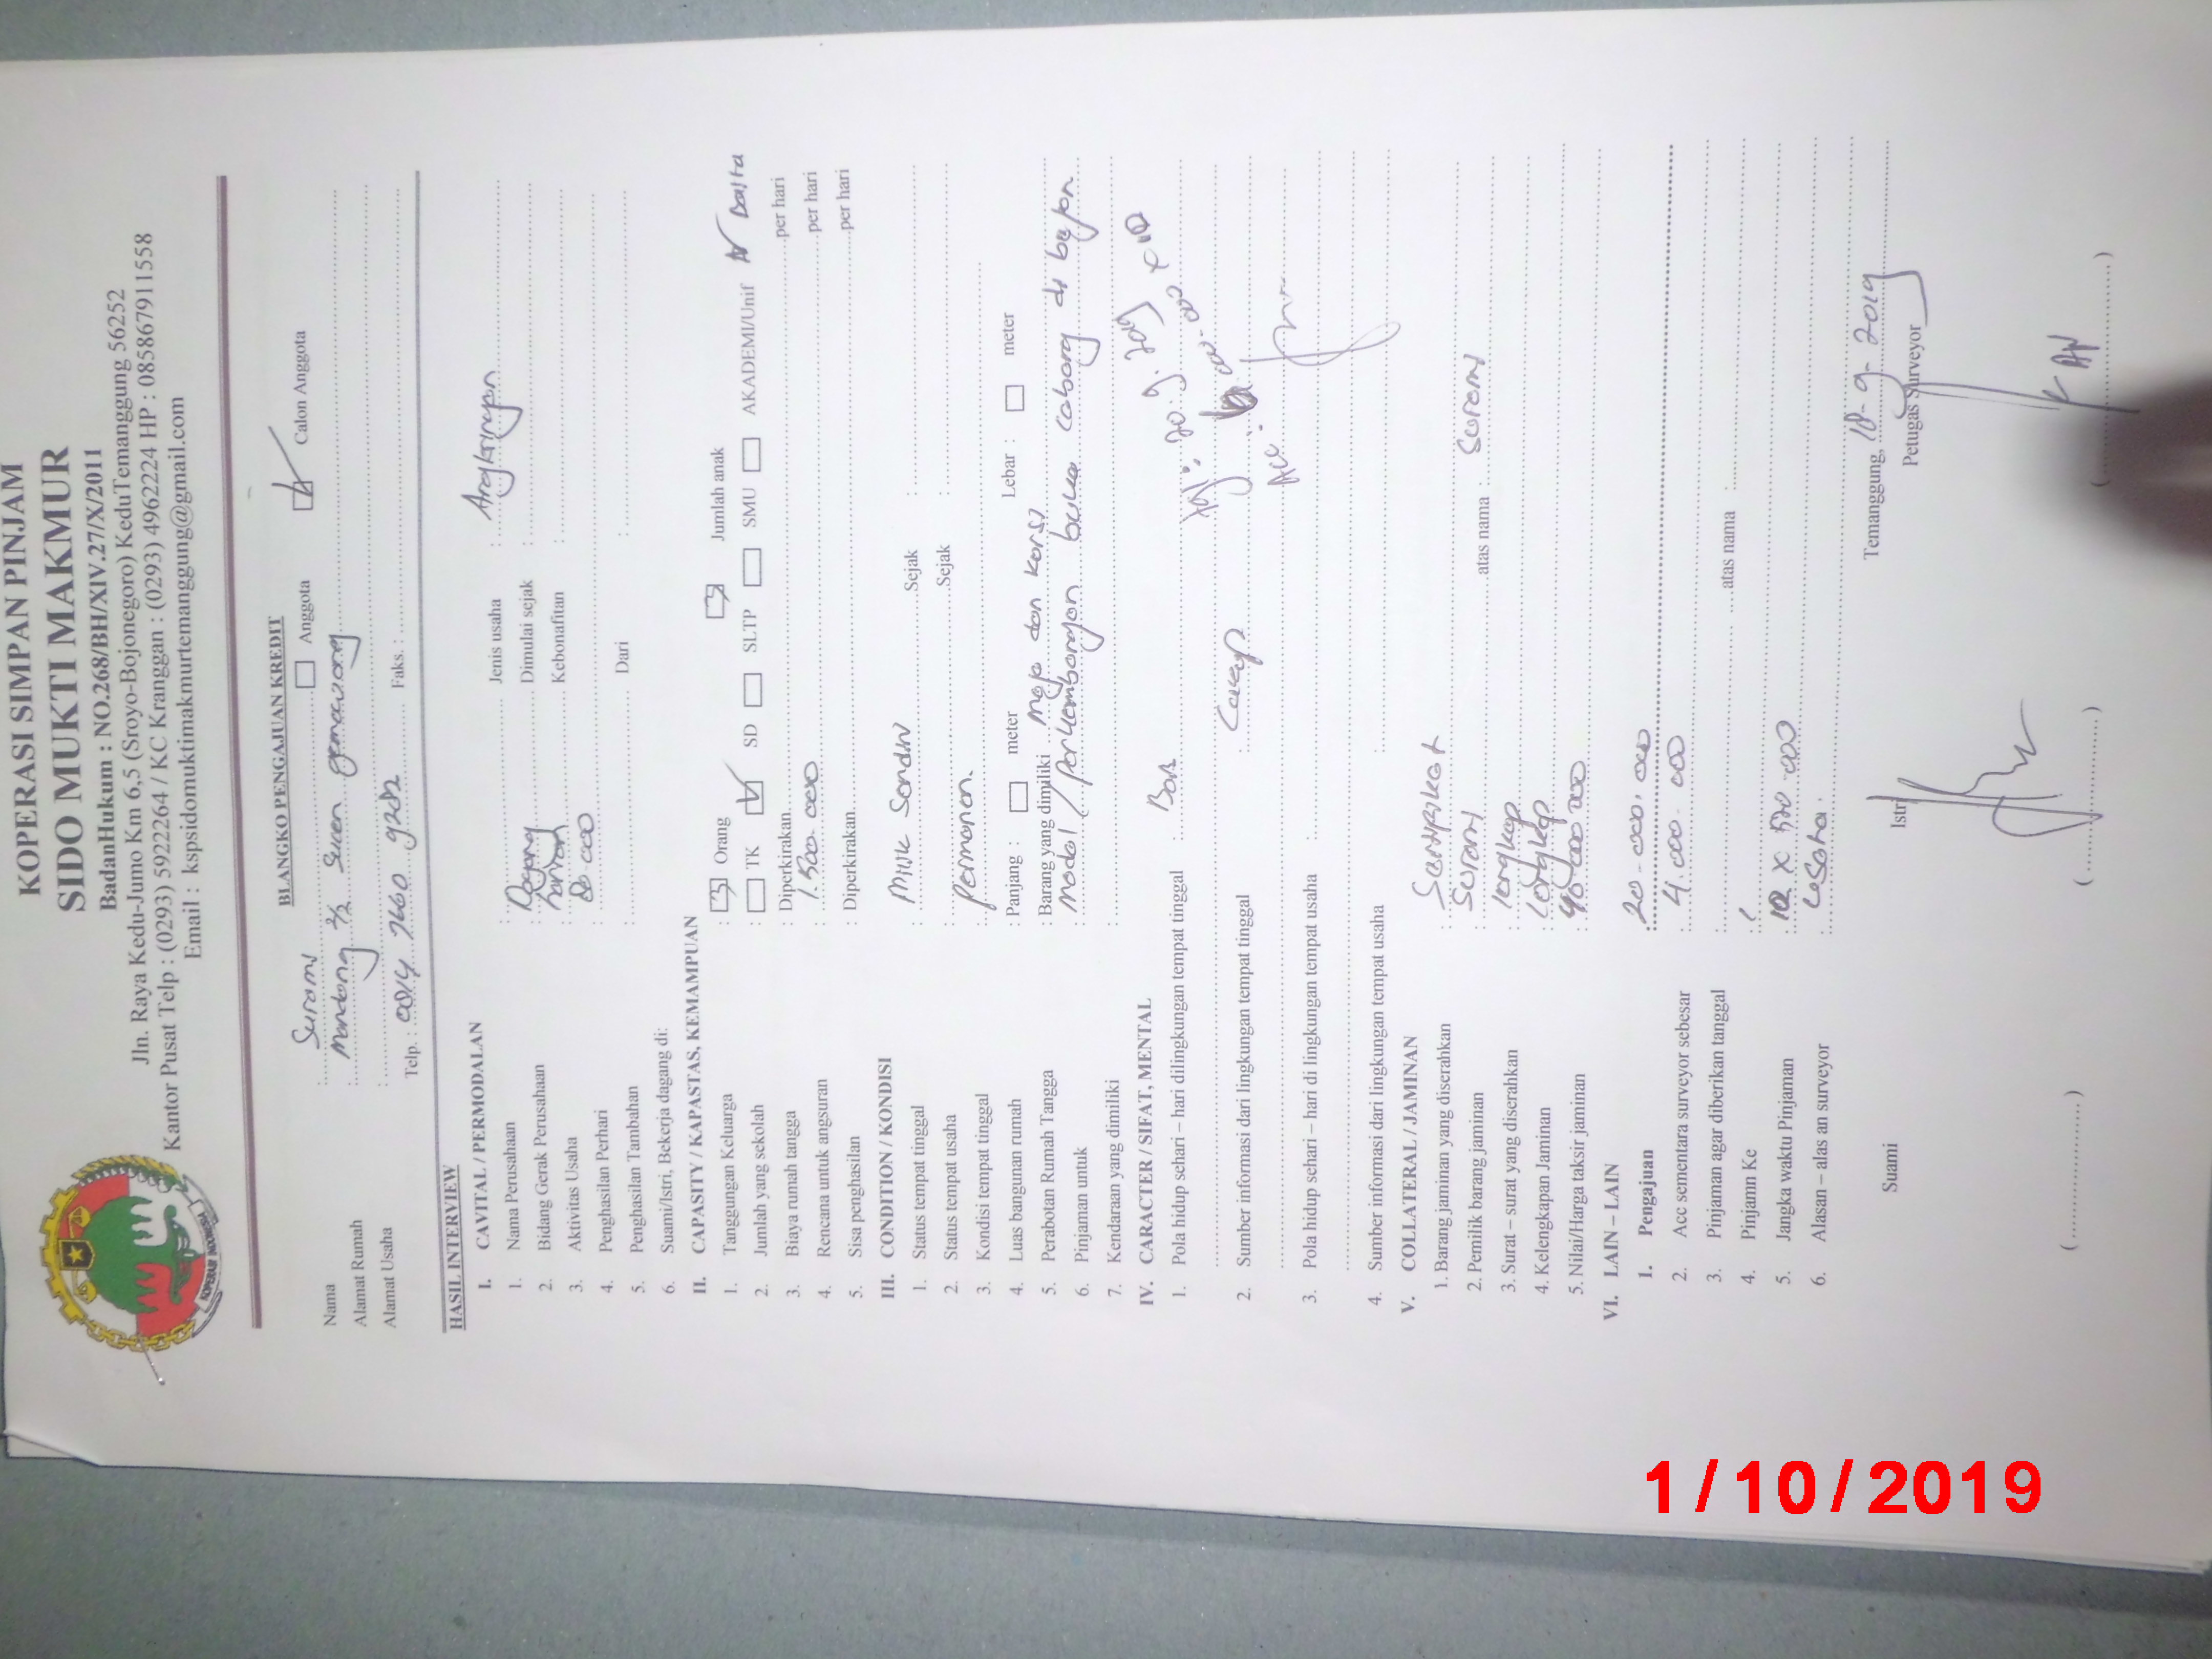 KOPERASI SIMPAN PINJAM
SIDO MUKTI MAKMUR
BadanHukum : NO.268/BH/XIV.27/X/2011
Jln. Raya Kedu-Jumo Km 6,5 (Sroyo-Bojonegoro) KeduTemanggung 56252
Kantor Pusat Telp : (0293) 5922264 / KC Kranggan : (0293) 4962224 HP : 085867911558
Email : kspsidomuktimakmurtemanggung@gmail.com
KOPERASI INDONESIA
BLANGKO PENGAJUAN KREDIT
Nama : Surami Anggota Calon Anggota
Alamat Rumah : Mandang 2/2 Suren gemawang
Alamat Usaha :
Telp. : Faks. :
HASIL INTERVIEW
I. CAVITAL / PERMODALAN
1. Nama Perusahaan : Jenis usaha : Angkringan
2. Bidang Gerak Perusahaan : Dagang Dimulai sejak :
3. Aktivitas Usaha : harian Kebonafitan :
4. Penghasilan Perhari :
5. Penghasilan Tambahan : Dari :
6. Suami/Istri, Bekerja dagang di:
II. CAPASITY / KAPASTAS, KEMAMPUAN
1. Tanggungan Keluarga : 3 Orang 3 Jumlah anak
2. Jumlah yang sekolah : TK SD SLTP SMU AKADEMI/Unif balita
3. Biaya rumah tangga : Diperkirakan per hari
4. Rencana untuk angsuran : 1.500.000 per hari
5. Sisa penghasilan : Diperkirakan per hari
III. CONDITION / KONDISI
1. Status tempat tinggal : Milik Sendiri Sejak :
2. Status tempat usaha : Sejak :
3. Kondisi tempat tinggal : permanen
4. Luas bangunan rumah : Panjang : meter Lebar : meter
5. Perabotan Rumah Tangga : Barang yang dimiliki meja dan korsi
6. Pinjaman untuk : modal / perkembangan buka cabang di
7. Kendaraan yang dimiliki :
IV. CARACTER / SIFAT, MENTAL
1. Pola hidup sehari – hari dilingkungan tempat tinggal : Baik
2. Sumber informasi dari lingkungan tempat tinggal : Cakap
Acc.
3. Pola hidup sehari – hari di lingkungan tempat usaha :
4. Sumber informasi dari lingkungan tempat usaha :
V. COLLATERAL / JAMINAN
1. Barang jaminan yang diserahkan : Sertipikat
2. Pemilik barang jaminan : Surami atas nama : Surami
3. Surat – surat yang diserahkan : lengkap
4. Kelengkapan Jaminan : lengkap
5. Nilai/Harga taksir jaminan :
VI. LAIN – LAIN
1. Pengajuan : 20.000.000
2. Acc sementara surveyor sebesar : 4.000.000
3. Pinjaman agar diberikan tanggal : atas nama :
4. Pinjamn Ke :
5. Jangka waktu Pinjaman :
6. Alasan – alas an surveyor : Usaha.
Temanggung, 18-9-2019
Suami Istri Petugas Surveyor
(...............) (...............) (...............)
1/10/2019